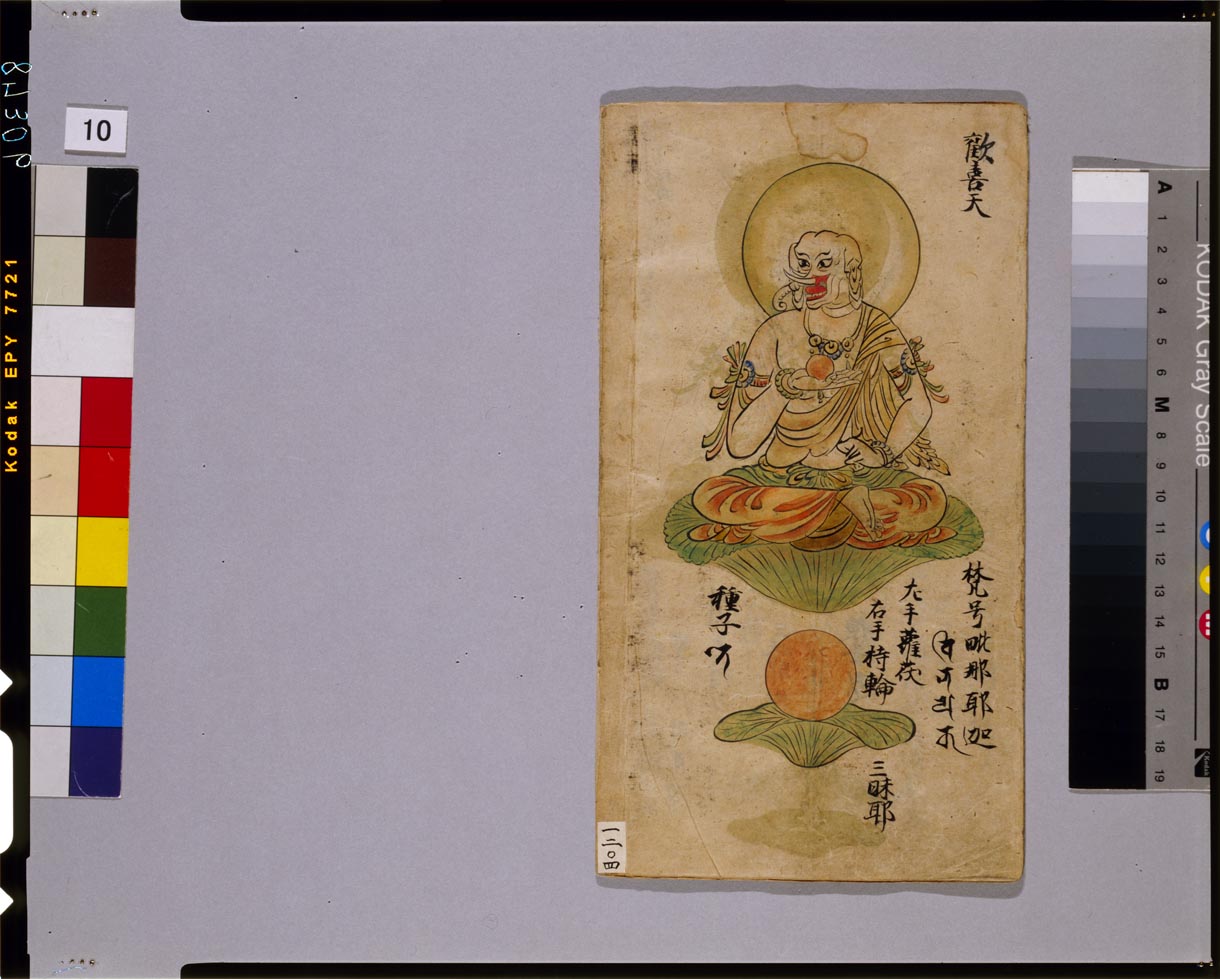 歡喜天
梵号毗那耶迦
左手蘿茯
右手持輪
三昧耶
種子
一二〇四
10
Kodak EPY 7721
KODAK Gray Scale
A 1 2 3 4 5 6 M 8 9 10 11 12 13 14 15 B 17 18 19
Kodak